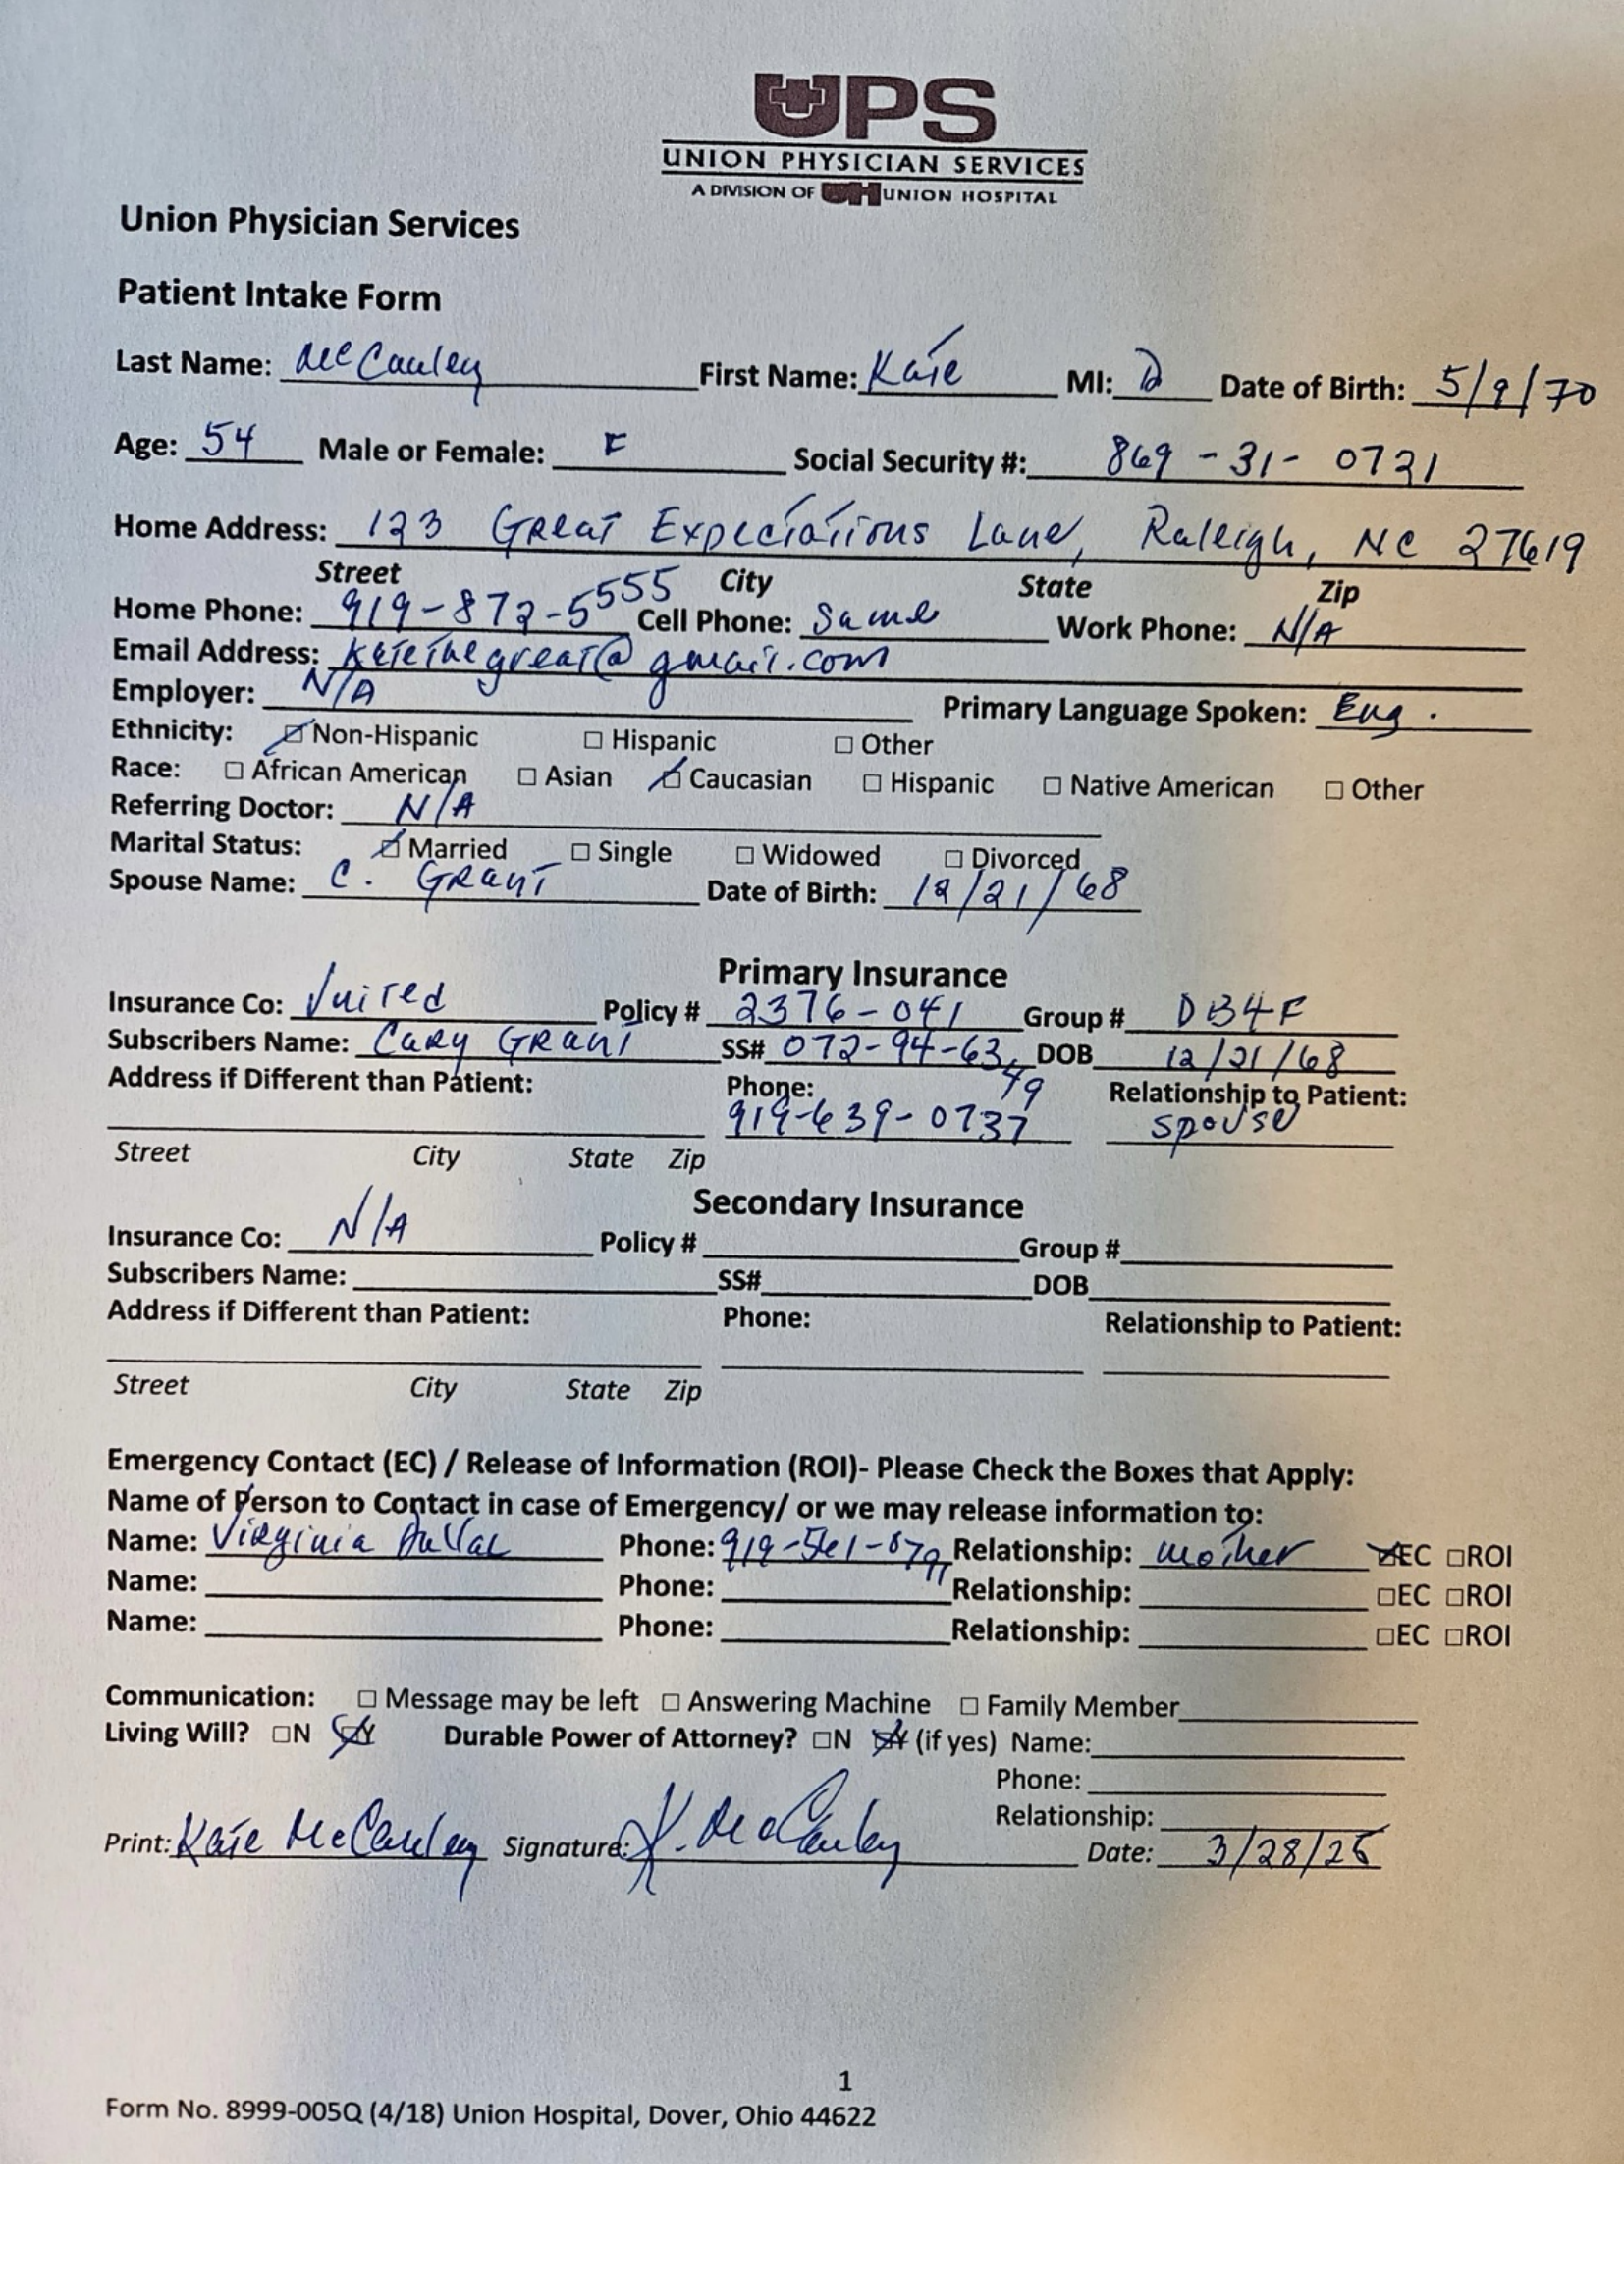 UPS
UNION PHYSICIAN SERVICES
A DIVISION OF UH UNION HOSPITAL
Union Physician Services
Patient Intake Form
Last Name: McCauley First Name: Kate MI: D Date of Birth: 5/9/70
Age: 54 Male or Female: F Social Security #: 869-31-0721
Home Address: 123 Great Expectations Lane, Raleigh, NC 27619
Street City State Zip
Home Phone: 919-872-5555 Cell Phone: Same Work Phone: N/A
Email Address: Katethegreat@gmail.com
Employer: N/A Primary Language Spoken: Eng.
Ethnicity: ☑Non-Hispanic ☐ Hispanic ☐ Other
Race: ☐ African American ☐ Asian ☑ Caucasian ☐ Hispanic ☐ Native American ☐ Other
Referring Doctor: N/A
Marital Status: ☑ Married ☐ Single ☐ Widowed ☐ Divorced
Spouse Name: C. Grant Date of Birth: 12/21/68
Primary Insurance
Insurance Co: United Policy # 2376-041 Group # DB4F
Subscribers Name: Cary Grant SS# 072-94-6349 DOB 12/21/68
Address if Different than Patient: Phone: 919-639-0737 Relationship to Patient: spouse
Street City State Zip
Secondary Insurance
Insurance Co: N/A Policy # Group #
Subscribers Name: SS# DOB
Address if Different than Patient: Phone: Relationship to Patient:
Street City State Zip
Emergency Contact (EC) / Release of Information (ROI)- Please Check the Boxes that Apply:
Name of Person to Contact in case of Emergency/ or we may release information to:
Name: Virginia Phone: Relationship: mother ☑EC ☐ROI
Name: Phone: Relationship: ☐EC ☐ROI
Name: Phone: Relationship: ☐EC ☐ROI
Communication: ☐ Message may be left ☐ Answering Machine ☐ Family Member
Living Will? ☐N ☑Y Durable Power of Attorney? ☐N ☑Y (if yes) Name:
Phone:
Relationship:
Print: Kate McCauley Signature: K. McCauley Date: 3/28/25
1
Form No. 8999-005Q (4/18) Union Hospital, Dover, Ohio 44622